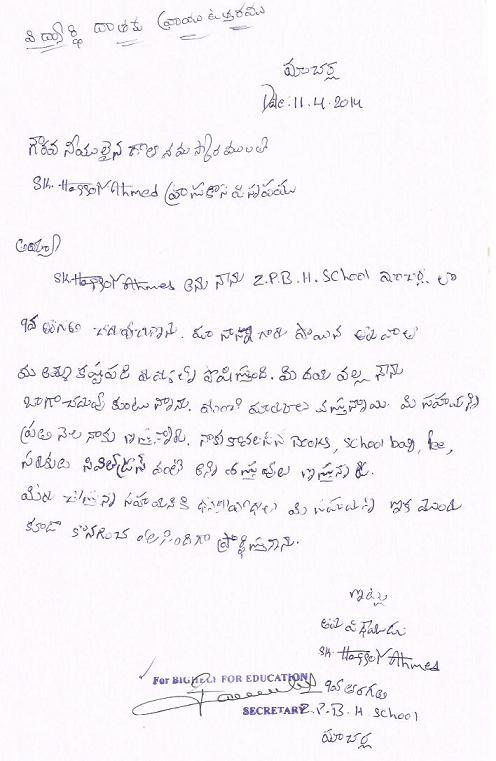 విద్యార్థి దాతకు వ్రాయు ఉత్తరము
మాచర్ల
Date: 11.4.2014
గౌరవనీయులైన దాతల నమస్కారములతో
SK. Ahmed వ్రాసుకొన్న విన్నపము
అయ్యా
SK Ahmed అను నేను Z.P.B.H. School మాచర్ల లో
9వ తరగతి చదువుచున్నాను. మా నాన్నగారు పోయిన తరువాత
మా అమ్మ కష్టపడి మమ్మల్ని పోషిస్తుంది. మీ దయ వల్ల నేను
బాగా చదువుకుంటున్నాను. మంచి మార్కులు వస్తున్నాయి. మీ సహాయాన్ని
ప్రతి నెల నాకు ఇస్తున్నారు. నాకు కావలసిన Books, School bag, fee,
సబ్బులు సివిల్ డ్రస్ వంటి అన్ని వస్తువులు ఇస్తున్నారు.
మీరు చేస్తున్న సహాయానికి ధన్యవాదాలు మీ సహాయాన్ని ఇక ముందు
కూడా కొనసాగించవలసిందిగా ప్రార్థిస్తున్నాను.
ఇట్లు
తమ విధేయుడు
SK. Ahmed
9వ తరగతి
Z.P.B.H School
మాచర్ల
For BIGHELP FOR EDUCATION
SECRETARY